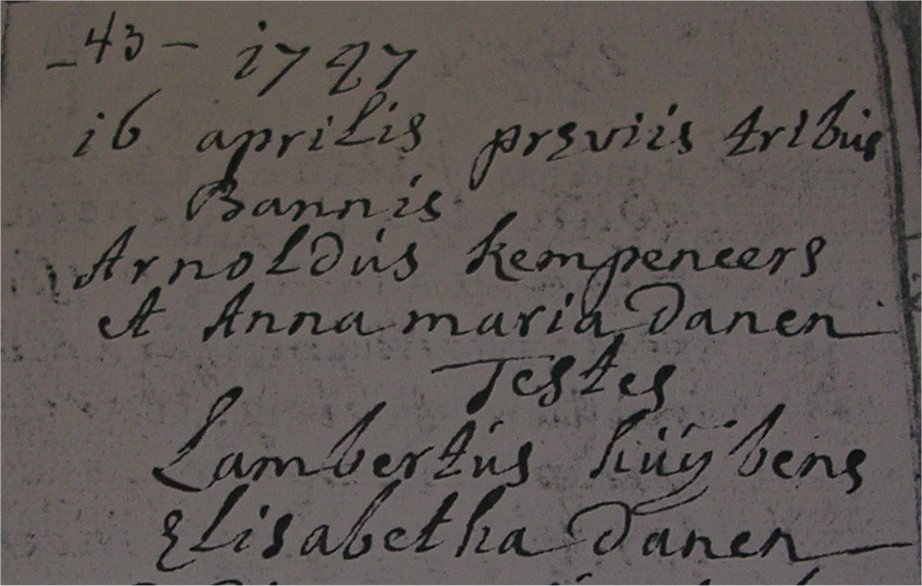 - 43 - 1747
16 aprilis pręviis tribus
Bannis
Arnoldus kempeneers
et Anna maria Danen
Testes
Lambertus huÿbens
Elisabetha Danen